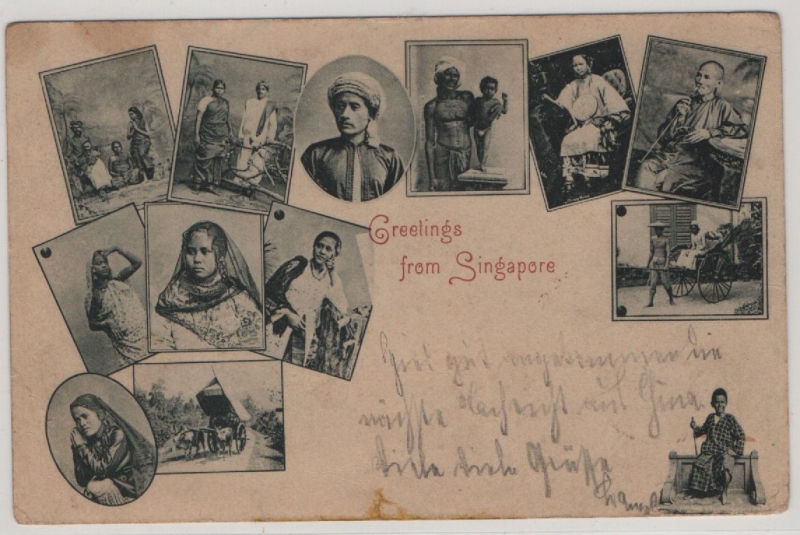 Greetings
from Singapore
Hier gut angekommen die
nächste Nachricht aus China
Viele viele Grüße